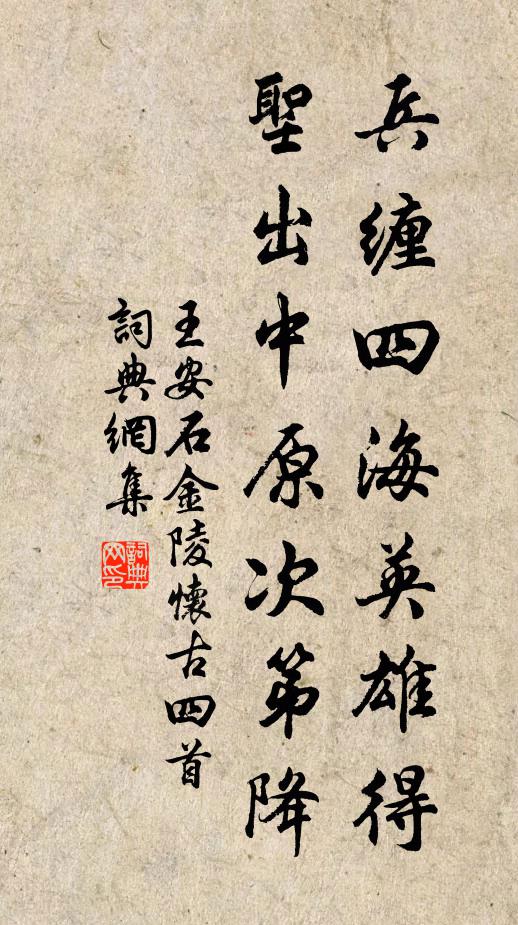 兵纏四海英雄得
聖出中原次第降
王安石金陵懷古四首
詞典網集
詞典網印